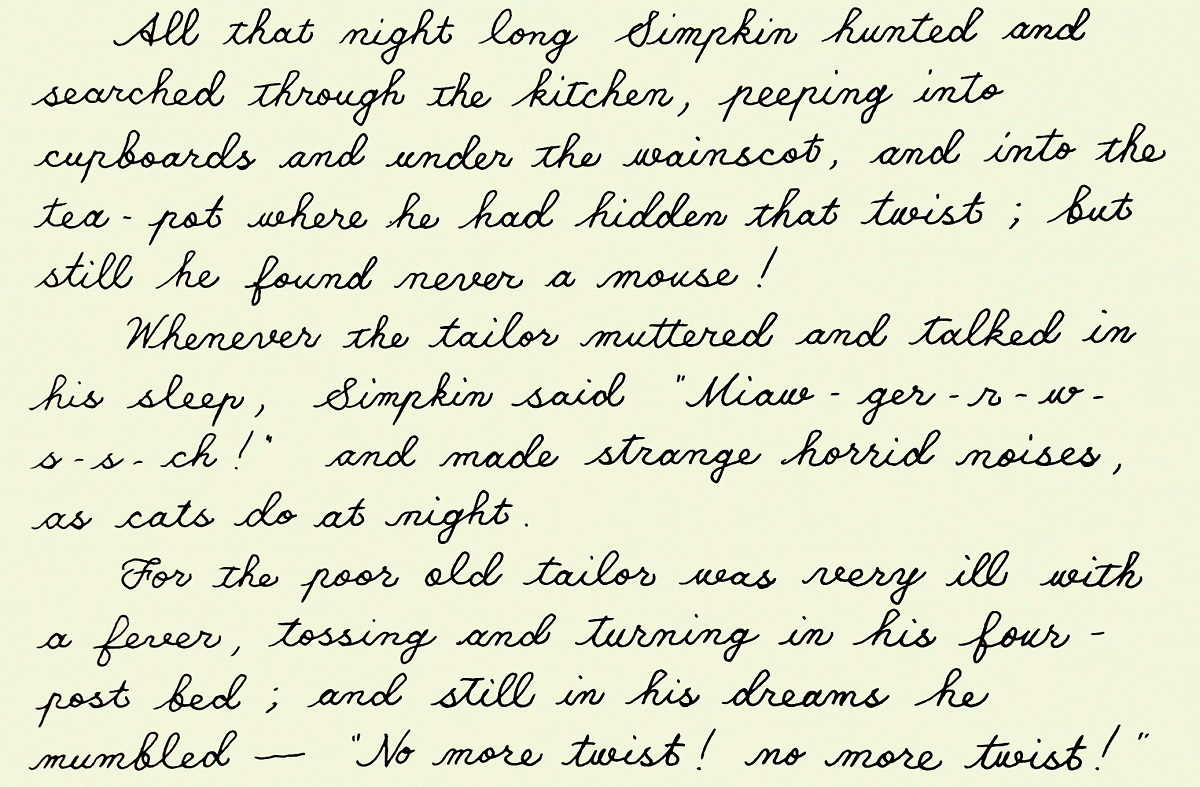 All that night long Simpkin hunted and
searched through the kitchen, peeping into
cupboards and under the wainscot, and into the
tea-pot where he had hidden that twist ; but
still he found never a mouse !
Whenever the tailor muttered and talked in
his sleep, Simpkin said "Miaw-ger-r-w-
s-s-ch !" and made strange horrid noises,
as cats do at night.
For the poor old tailor was very ill with
a fever, tossing and turning in his four-
post bed ; and still in his dreams he
mumbled — "No more twist ! no more twist ! "